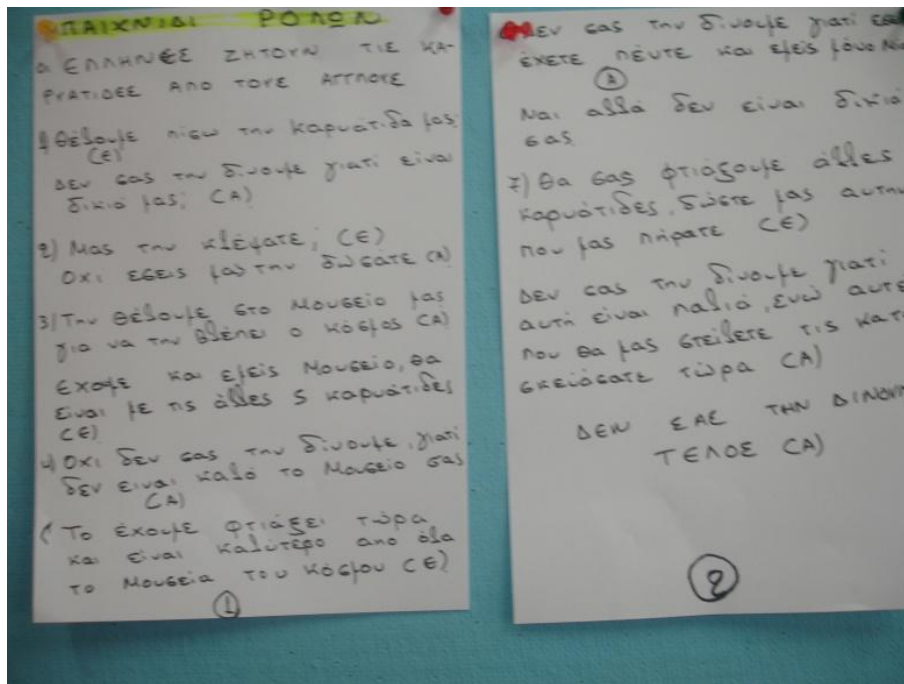 ΠΑΙΧΝΙΔΙ ΡΟΛΩΝ
οι ΕΛΛΗΝΕΣ ΖΗΤΟΥΝ ΤΙΣ ΚΑ-
ΡΥΑΤΙΔΕΣ ΑΠΟ ΤΟΥΣ ΑΓΓΛΟΥΣ
1) Θέλουμε πίσω την καρυάτιδα μας;
(Ε)
Δεν σας την δίνουμε γιατί είναι
δικιά μας; (Α)
2) Μας την κλέψατε; (Ε)
Οχι εσεις μας την δώσατε (Α)
3) Την θέλουμε στο Μουσείο μας
για να την βλέπει ο κόσμος (Α)
Εχουμε και εμείς Μουσείο, θα
είναι με τις άλλες 5 καρυάτιδες
(Ε)
4) Οχι δεν σας την δίνουμε, γιατί
δεν ειναι καλό το Μουσείο σας
(Α)
Το έχουμε φτιάξει τώρα
και είναι καλύτερο από όλα
τα Μουσεία του κόσμου (Ε)
1
Δεν σας την δίνουμε γιατί
έχετε πέντε και εμείς μόνο
Α
Ναι αλλά δεν είναι δικιά
σας
7) Θα σας φτιάξουμε άλλες
καρυάτιδες, δώστε μας αυτήν
που μας πήρατε (Ε)
Δεν σας την δίνουμε γιατί
αυτή είναι παλιά, ενώ αυτές
που θα μας στείλετε τις κατα
σκεύάσατε τώρα (Α)
ΔΕΝ ΣΑΣ ΤΗΝ ΔΙΝΟΥΜ
ΤΕΛΟΣ (Α)
2